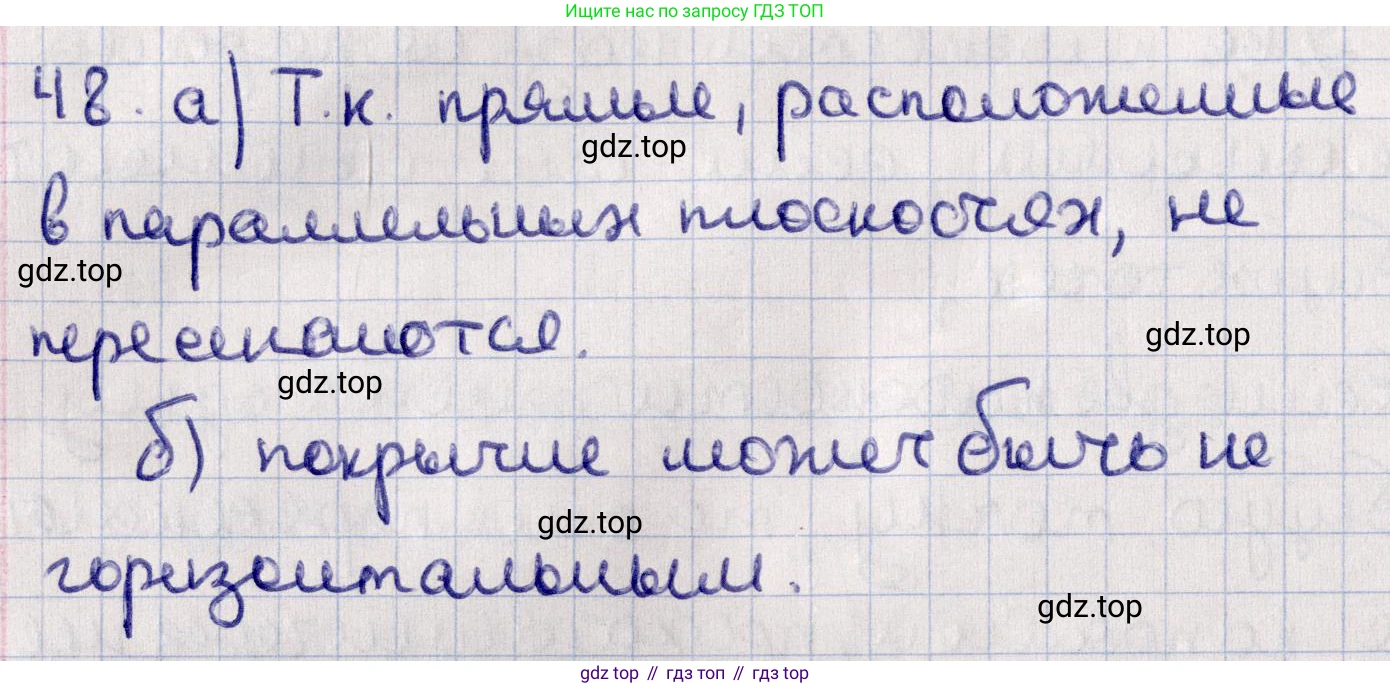 Ищите нас по запросу ГДЗ ТОП
48. а) Т.к. прямые, расположенные
gdz.top
в параллельных плоскостях, не
gdz.top
пересекаются.
gdz.top
gdz.top
б) покрытие может быть не
gdz.top
горизонтальным.
gdz.top
gdz top // гдз топ // гдз top